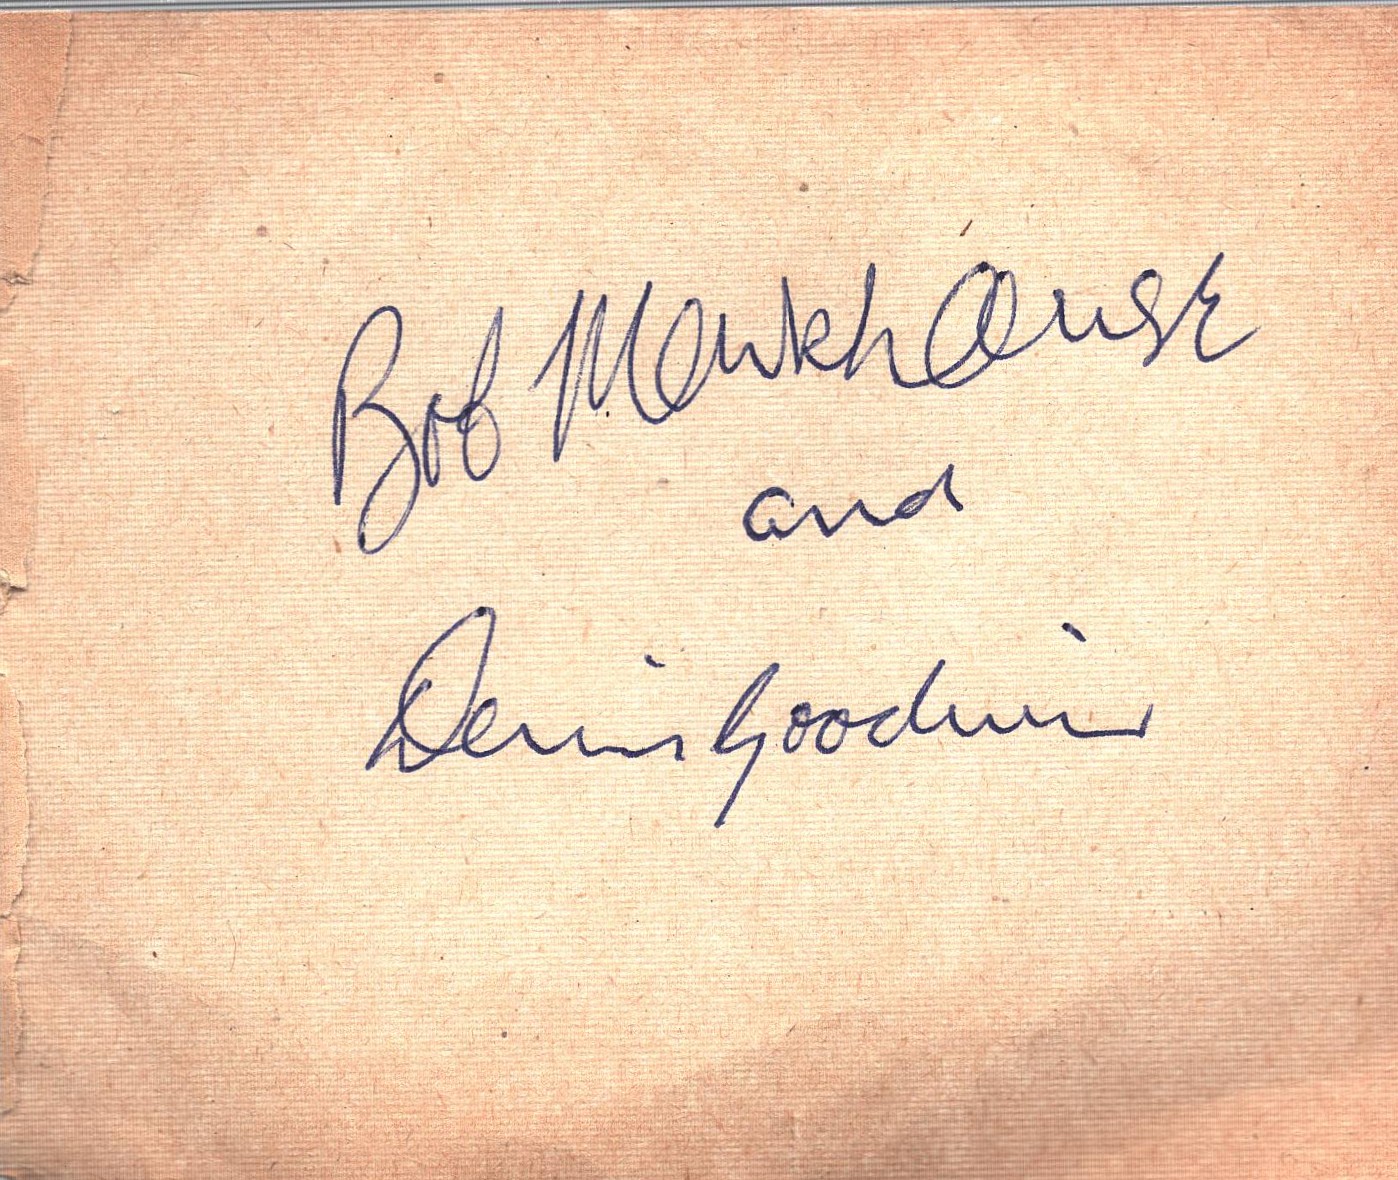 Bob Monkhouse
and
Denis Goodwin